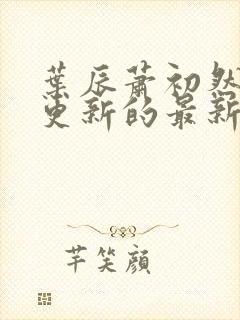 葉辰蕭初然
更新的最新
芊笑顔